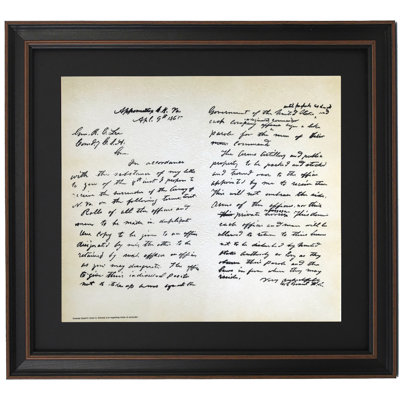 Appomattox C.H. Va
Apl. 9th 1865
Gen. R. E. Lee
Comd'g C.S.A.
Gen.
In accordance
with the substance of my letter
to you of the 8th inst. I propose to
receive the surrender of the Army of
N. Va. on the following terms
Rolls of all the officers and
men to be made in duplicate
One copy to be given to an officer
designated by me, the other to be
retained by such officer or officers
as you may designate. The officers
to give their individual paroles
not to take up arms against the
Government of the United States
each company officer sign a like
parole for the men of their
commands
The Arms, Artillery and public
property to be parked and stacked
and turned over to the officer
appointed by me to receive them
This will not embrace the side
Arms of the officers, nor their
private horses
each officer and man will be
allowed to return to their homes
not to be disturbed by United
States Authority so long as they
observe their parole and the
laws in force where they may
reside.
Very
U.S. Grant